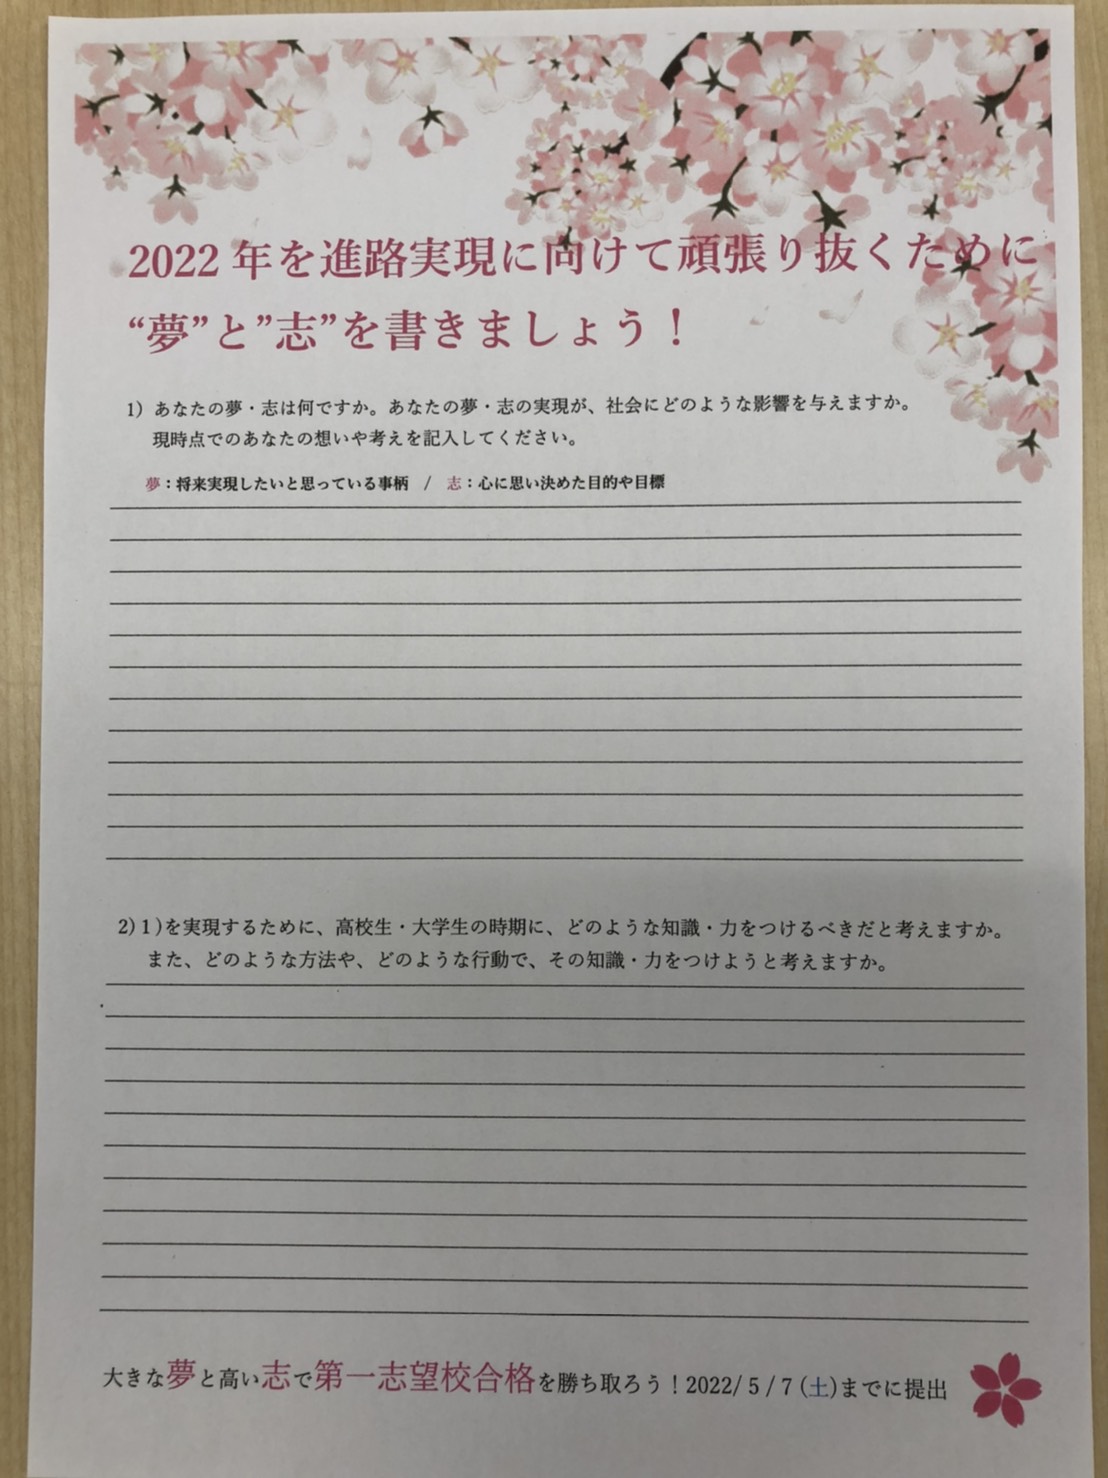 2022年を進路実現に向けて頑張り抜くために
“夢”と”志”を書きましょう！
1）あなたの夢・志は何ですか。あなたの夢・志の実現が、社会にどのような影響を与えますか。
現時点でのあなたの想いや考えを記入してください。
夢：将来実現したいと思っている事柄 / 志：心に思い決めた目的や目標
2) 1 )を実現するために、高校生・大学生の時期に、どのような知識・力をつけるべきだと考えますか。
また、どのような方法や、どのような行動で、その知識・力をつけようと考えますか。
大きな夢と高い志で第一志望校合格を勝ち取ろう！2022/ 5 / 7 (土)までに提出